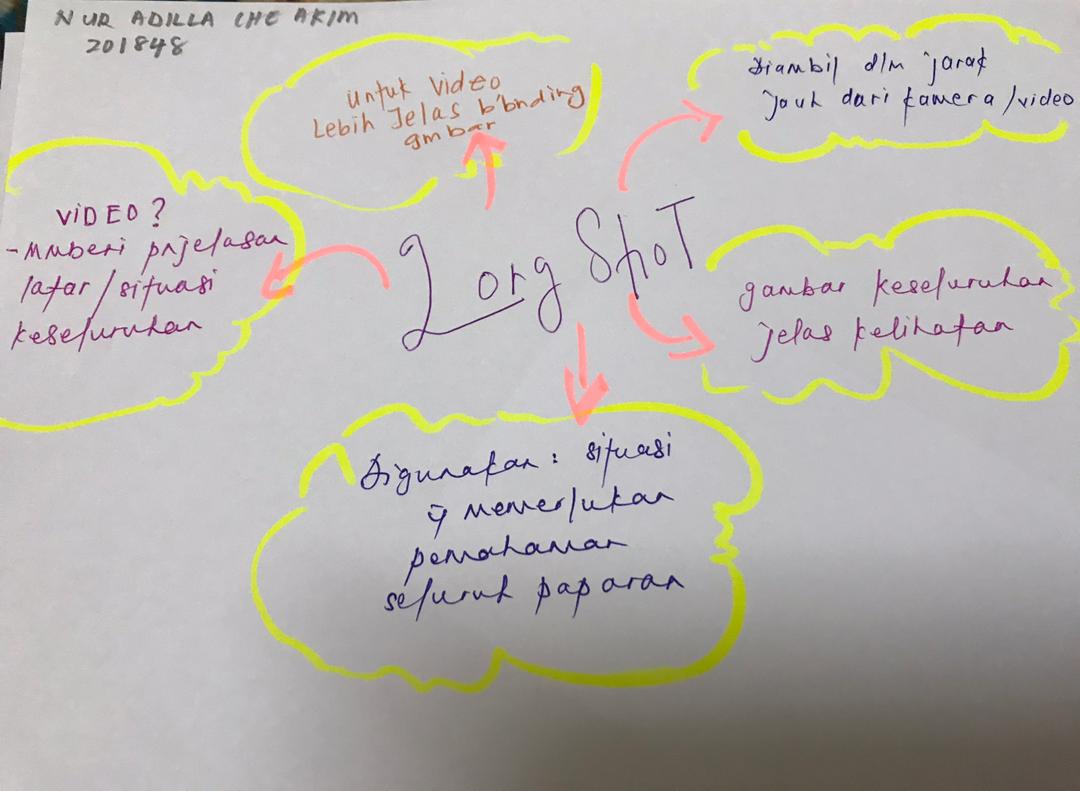 NUR ADILLA CHE AKIM
201848
Untuk Video
Lebih Jelas b'bnding
gmbar
Diambil dlm jarak
jauh dari kamera/video
VIDEO?
-Mmberi pnjelasan
latar/situasi
keseluruhan
Long Shot
gambar keseluruhan
jelas kelihatan
Digunakan: situasi
memerlukan
pemahaman
seluruh paparan